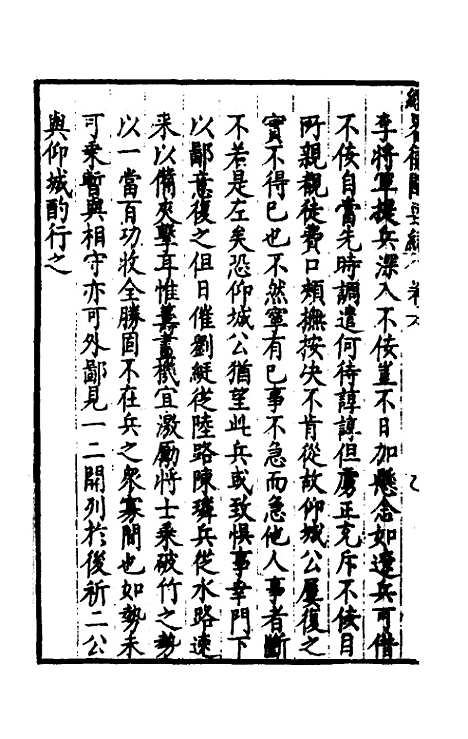 李將軍提兵深入不佞豈不日加懸念如遼兵可借
不佞自當先時調遣何待諄諄但虜正充斥不佞目
所親覩徒費口頰撫按决不肯從故仰城公屢復之
實不得已也不然寧有已事不急而急他人事者斷
不若是左矣恐仰城公猶望此兵或致悞事幸門下
以鄙意復之但日催劉綎從陸路陳璘兵從水路速
来以備夾擊耳惟籌畫機宜激勵將士乘破竹之勢
以一當百功收全勝固不在兵之衆寡間也如勢未
可乘暫與相守亦可外鄙見一二開列於後祈二公
與仰城酌行之